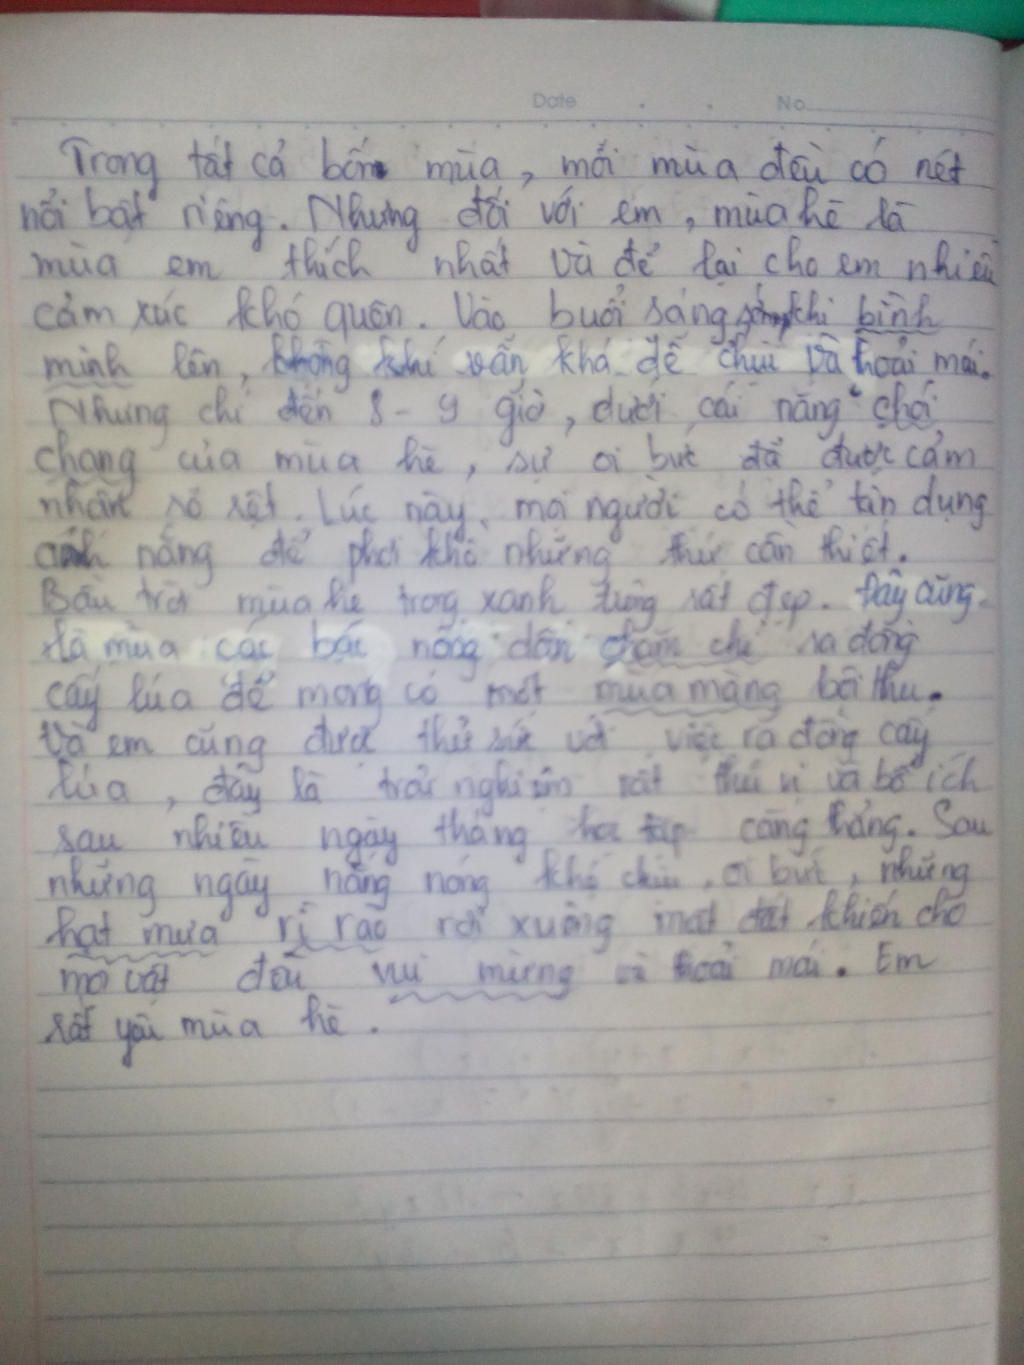 Date No
Trong tất cả bốn mùa, mỗi mùa đều có nét
nổi bật riêng. Nhưng đối với em, mùa hè là
mùa em thích nhất và để lại cho em nhiều
cảm xúc khó quên. Vào buổi sáng sớm, khi bình
minh lên, không khí vẫn khá dễ chịu và thoải mái.
Nhưng chỉ đến 8 - 9 giờ, dưới cái nắng chói
chang của mùa hè, sự oi bức đã được cảm
nhận rõ rệt. Lúc này, mọi người có thể tận dụng
ánh nắng để phơi khô những thứ cần thiết.
Bầu trời mùa hè trong xanh rất đẹp. Đây cũng
là mùa các bác nông dân chăm chỉ ra đồng
cấy lúa để mong có một mùa màng bội thu.
Và em cũng được thử sức với việc ra đồng cấy
lúa, đây là trải nghiệm rất thú vị và bổ ích
sau nhiều ngày tháng học tập căng thẳng. Sau
những ngày nắng nóng khó chịu, oi bức, những
hạt mưa rị rào rơi xuống mặt đất khiến cho
mọi vật đều vui mừng và thoải mái. Em
rất yêu mùa hè.